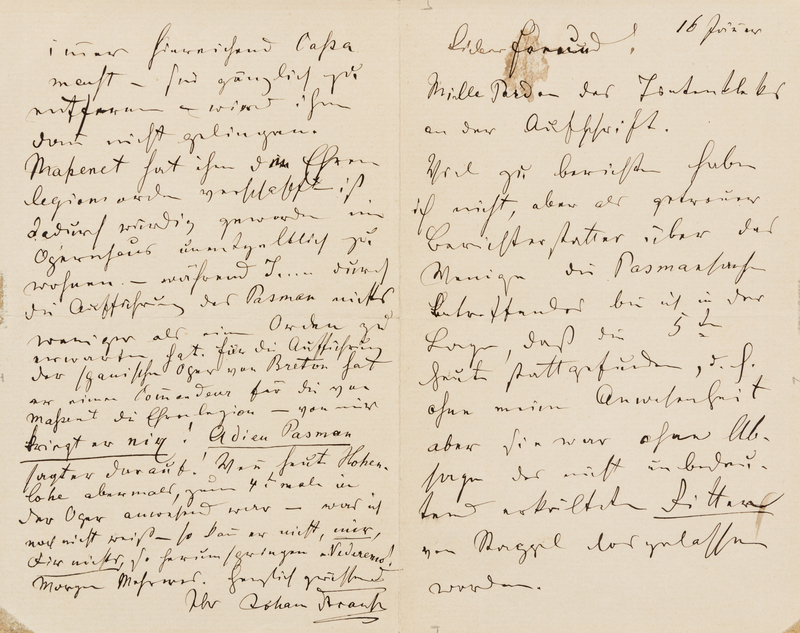 16 Jänner
Lieber Freund!
Mille Pardon des Tintenkleks
an der Aufschrift.
Viel zu berichten habe
ich nicht, aber als getreuer
Berichterstatter über das
Wenige die Pasmansache
betreffendes bin ich in der
Lage, daß die 5te
heute stattgefunden, d. h.
ohne meine Anwesenheit
aber sie war ohne Ab-
sage des nicht unbedeu-
tend erkälteten Ritters
von Stappel losgelassen
worden.
immer hinreichend Cassa
macht – sie gänzlich zu
entfernen – wird ihm
dann nicht gelingen.
Maßenet hat ihm den Ehren
legionsorden verschafft ist
dadurch würdig geworden im
Opernhaus unentgeltlich zu
wohnen. – während J... durch
die Aufführung des Pasman nichts
weniger als einen Orden zu
erwarten hat. für die Aufführung
der spanischen Oper von Breton hat
er einen Commandeur für die von
Maßent die Ehrenlegion – von mir
kriegt er nix! Adieu Pasman
sagt er darauf! Wenn heut Hohen-
lohe abermals, zum 4ten male in
der Oper anwesend war – was ich
noch nicht weiß – so kann er nicht, mir,
dir nichts, so herumspringen
Morgen Mehreres. Herzlich grüssend
Ihr Johann Strauss